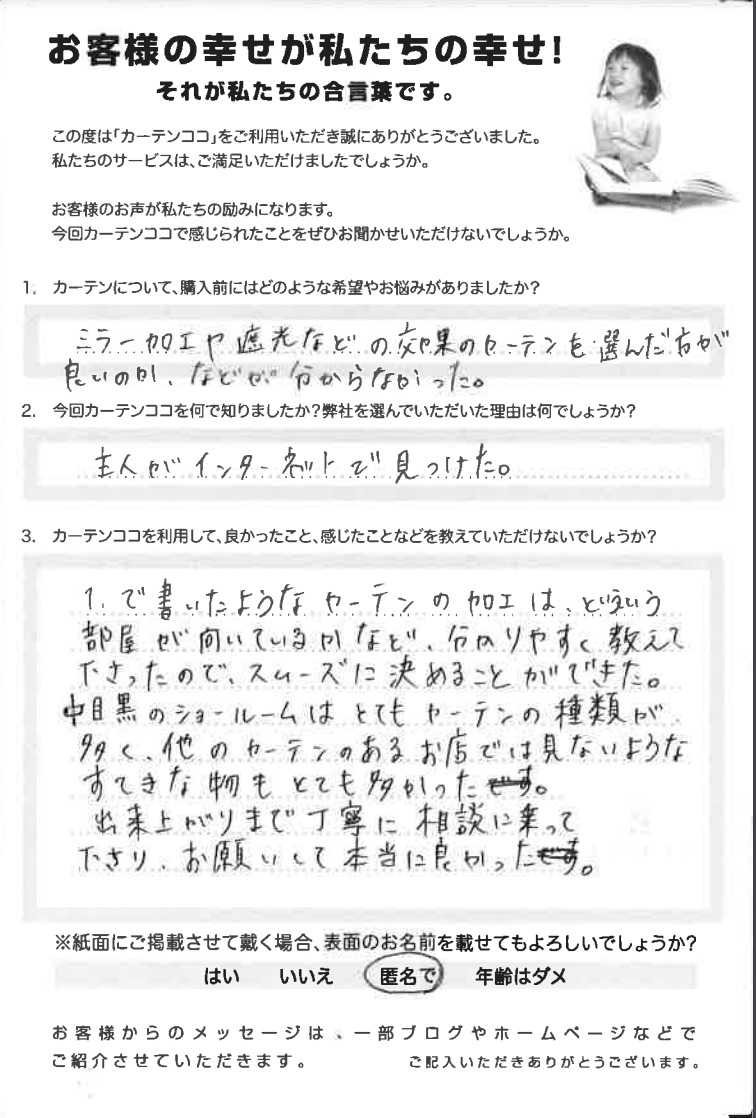 お客様の幸せが私たちの幸せ!
それが私たちの合言葉です。
この度は「カーテンココ」をご利用いただき誠にありがとうございました。
私たちのサービスは、ご満足いただけましたでしょうか。
お客様のお声が私たちの励みになります。
今回カーテンココで感じられたことをぜひお聞かせいただけないでしょうか。
1. カーテンについて、購入前にはどのような希望やお悩みがありましたか?
ミラー加工や遮光などの効果のカーテンを選んだ方が
良いのか、などが分からなかった。
2. 今回カーテンココを何で知りましたか?弊社を選んでいただいた理由は何でしょうか?
主人がインターネットで見つけた。
3. カーテンココを利用して、良かったこと、感じたことなどを教えていただけないでしょうか?
1.で書いたようなカーテンの加工は、どういう
部屋が向いているかなど、分かりやすく教えて
下さったので、スムーズに決めることができた。
中目黒のショールームはとてもカーテンの種類が
多く、他のカーテンのあるお店では見ないような
すてきな物もとても多かったです。
出来上がりまで丁寧に相談に乗って
下さり、お願いして本当に良かったです。
※紙面にご掲載させて戴く場合、表面のお名前を載せてもよろしいでしょうか?
はい いいえ 匿名で 年齢はダメ
お客様からのメッセージは、一部ブログやホームページなどで
ご紹介させていただきます。 ご記入いただきありがとうございます。